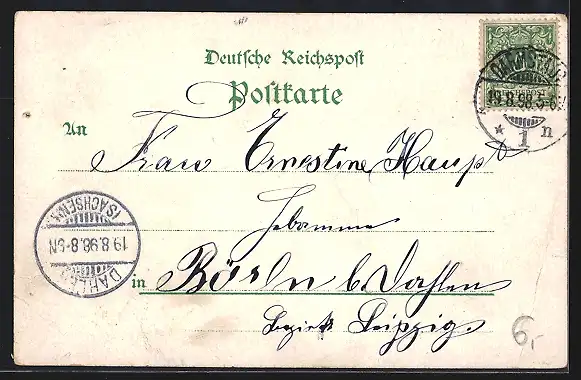 Deutsche Reichspost
Postkarte
An
Frau Ernestine Haupt
Hebamme
in Börln b. Dahlen
Bezirk Leipzig.
19.8.98.5-6N
* 1 n
(SACHSEN)
19.8.98.8-9N
DAHLEN
6,-